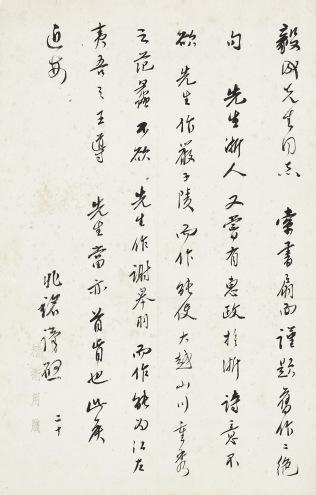 毅成先生同志 索書扇面謹題舊作二絕
句 先生浙人又嘗有惠政於浙詩意不
欲 先生作嚴子陵而作能使大越山川重秀
之范蠡不欲 先生作謝皋羽而作能為江左
夷吾之王導 先生當亦首肯也此候
近安
兆銘謹啟 二十